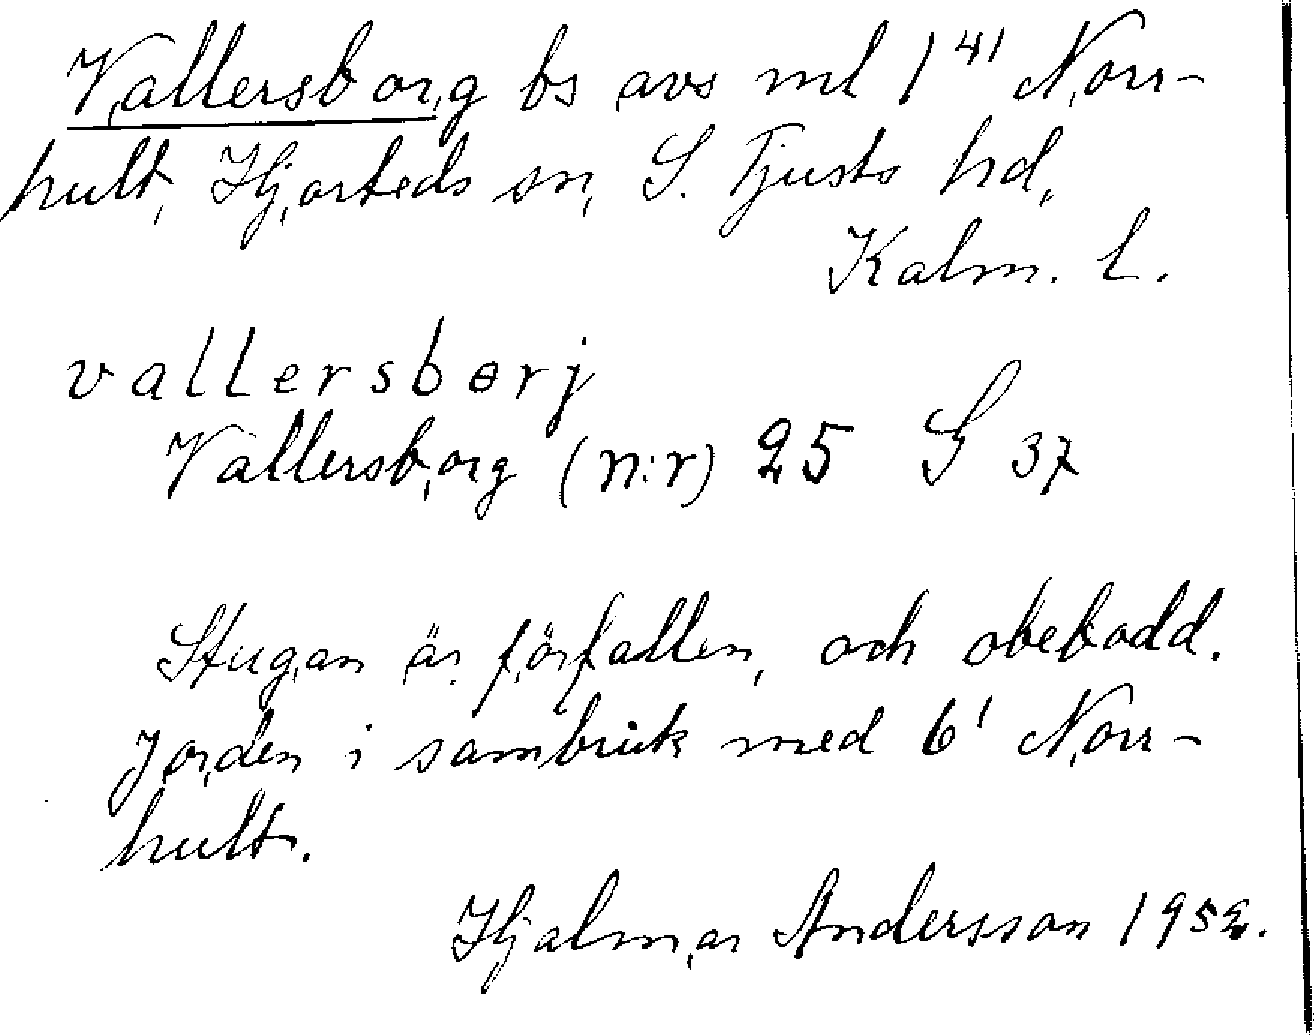 Vallersborg bs avs ml 1⁴¹ Norr-
hult, Hjorteds sn, S. Tjusts hd,
Kalm. l.
vallersbɵrj
Vallersborg (n:r) 25 S 37
Stugan är förfallen, och obebodd.
Jorden i sambruk med 6¹ Norr-
hult.
Hjalmar Andersson 1952.